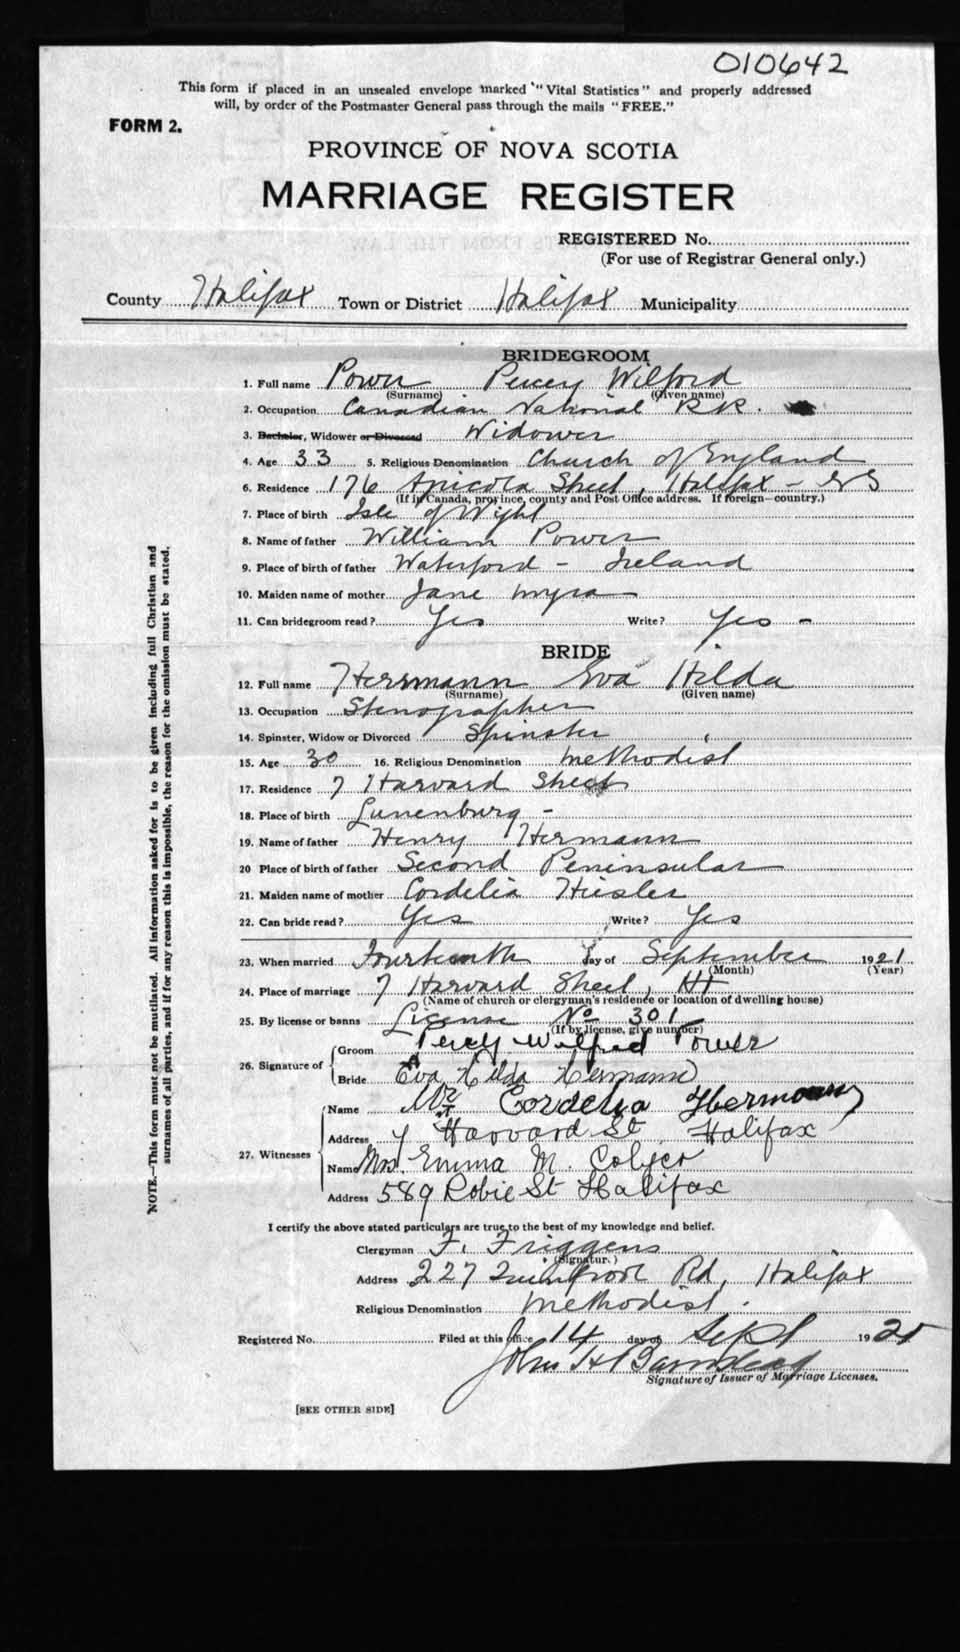 010642
This form if placed in an unsealed envelope marked "Vital Statistics" and properly addressed
will, by order of the Postmaster General pass through the mails "FREE."
FORM 2.
PROVINCE OF NOVA SCOTIA
MARRIAGE REGISTER
REGISTERED No.
(For use of Registrar General only.)
County Halifax Town or District Halifax Municipality
BRIDEGROOM
1. Full name Power Percy Wilford
(Surname) (Given name)
2. Occupation Canadian National RR.
3. Bachelor, Widower or Divorced Widower
4. Age 33 5. Religious Denomination Church of England
6. Residence 176 Agricola Street, Halifax - NS
(If in Canada, province, county and Post Office address. If foreign—country.)
7. Place of birth Isle of Wight
8. Name of father William Power
9. Place of birth of father Waterford - Ireland
10. Maiden name of mother Jane Myra
11. Can bridegroom read? Yes Write? Yes -
BRIDE
12. Full name Herrmann Eva Hilda
(Surname) (Given name)
13. Occupation Stenographer
14. Spinster, Widow or Divorced Spinster
15. Age 30 16. Religious Denomination Methodist
17. Residence 7 Harvard Street
18. Place of birth Lunenburg -
19. Name of father Henry Hermann
20 Place of birth of father Second Peninsular
21. Maiden name of mother Cordelia Hiesler
22. Can bride read? Yes Write? Yes
23. When married Fourteenth day of September 1921
(Month) (Year)
24. Place of marriage 7 Harvard Street, Hx
(Name of church or clergyman's residence or location of dwelling house)
25. By license or banns License No 301
(If by license, give number)
26. Signature of Groom Percy Wilfred Power
Bride Eva Hilda Hermann
27. Witnesses Name Cordelia Hermann
Address 7 Harvard St. Halifax
Name Mrs. Emma M.
Address 589 Robie St Halifax
I certify the above stated particulars are true to the best of my knowledge and belief.
Clergyman F. Friggens
(Signatur.)
Address 227 Quinpool Rd, Halifax
Religious Denomination Methodist.
Registered No. Filed at this office 14 day of Sept 1920
John H Barnstead
Signature of Issuer of Marriage Licenses.
[SEE OTHER SIDE]
NOTE.—This form must not be mutilated. All information asked for is to be given including full Christian and
surnames of all parties, and if for any reason this is impossible, the reason for the omission must be stated.